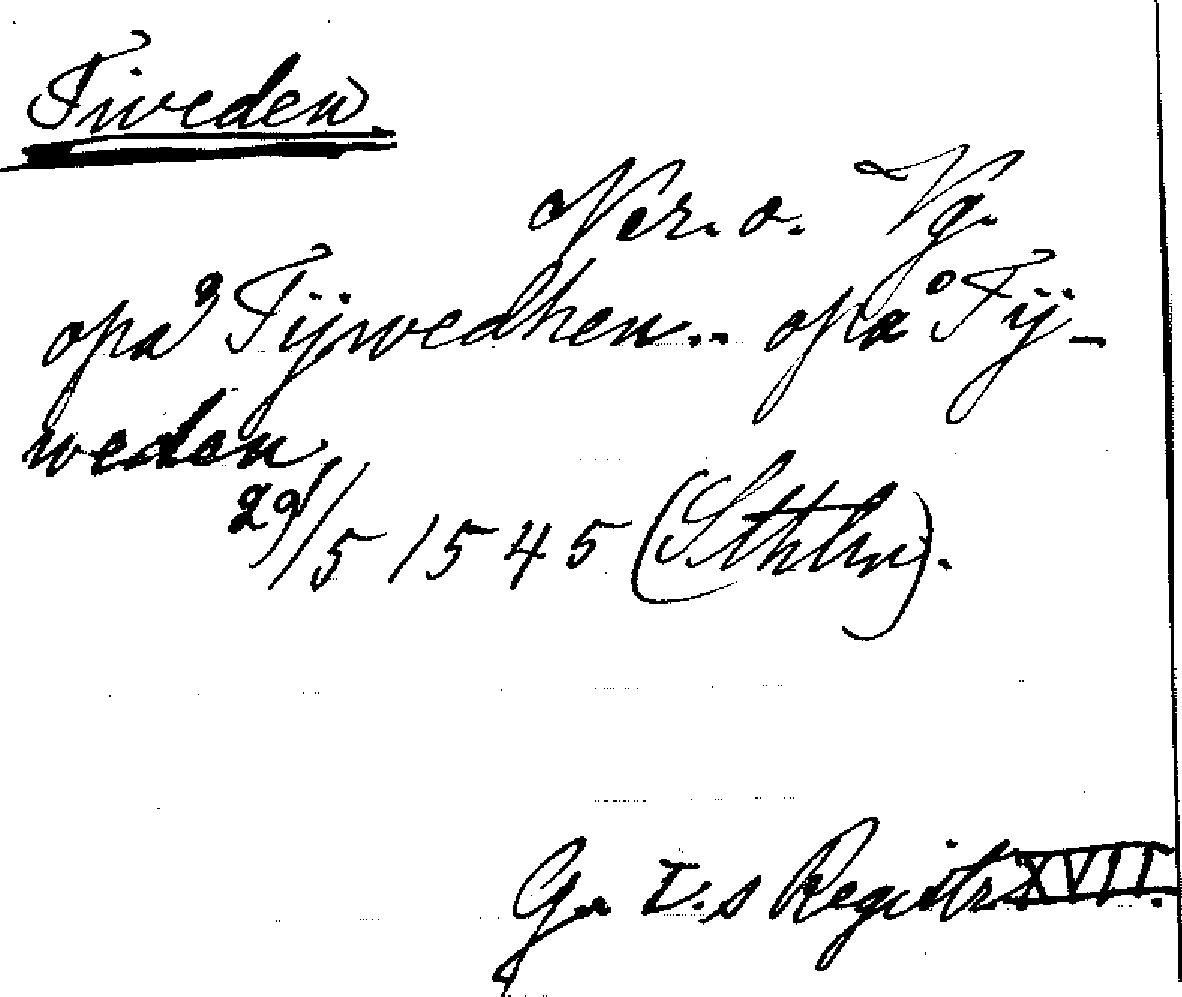 Tiveden
Ner. o. Vg.
opå Tijwedhen.. opå Tij-
weden
29/5 1545 (Sthlm).
G. I:s Registr. XVII.